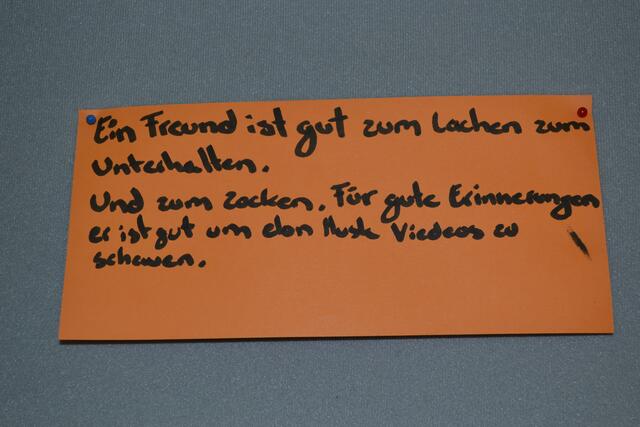 Ein Freund ist gut zum Lachen zum
Unterhalten.
Und zum zocken. Für gute Erinnerungen
er ist gut um elon Musk Viedeos zu
schauen.